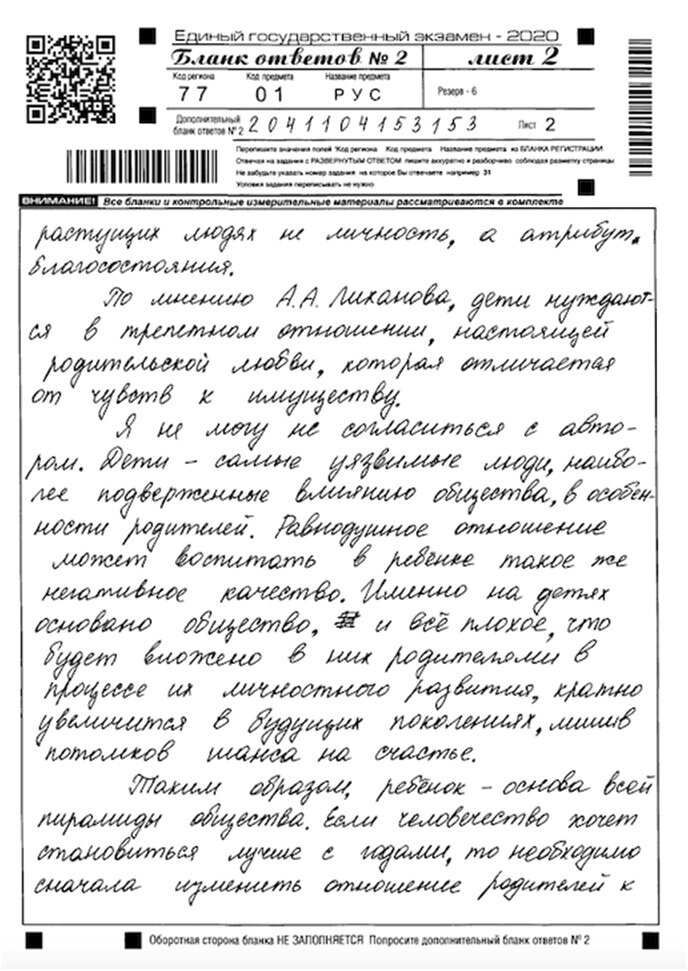 Единый государственный экзамен - 2020
Бланк ответов № 2 лист 2
Код региона Код предмета Название предмета
77 01 РУС Резерв - 6
Дополнительный бланк ответов № 2 2041104153153 Лист 2
Перепишите значения полей "Код региона" "Код предмета" "Название предмета" из БЛАНКА РЕГИСТРАЦИИ
Отвечая на задания с РАЗВЕРНУТЫМ ОТВЕТОМ пишите аккуратно и разборчиво соблюдая разметку страницы
Не забудьте указать номер задания на которое Вы отвечаете например 31
Условия задания переписывать не нужно
ВНИМАНИЕ! Все бланки и контрольные измерительные материалы рассматриваются в комплекте
растущих людях не личность, а атрибут
благосостояния.
По мнению А.А. Лиханова, дети нуждают-
ся в трепетном отношении, настоящей
родительской любви, которая отличается
от чувств к имуществу.
Я не могу не согласиться с авто-
ром. Дети – самые уязвимые люди, наибо-
лее подверженные влиянию общества, в особен-
ности родителей. Равнодушное отношение
может воспитать в ребёнке такое же
негативное качество. Именно на детях
основано общество, и всё плохое, что
будет вложено в них родителями в
процессе их личностного развития, кратно
увеличится в будущих поколениях, лишив
потомков шанса на счастье.
Таким образом, ребёнок – основа всей
пирамиды общества. Если человечество хочет
становиться лучше с годами, то необходимо
сначала изменить отношение родителей к
Оборотная сторона бланка НЕ ЗАПОЛНЯЕТСЯ Попросите дополнительный бланк ответов № 2